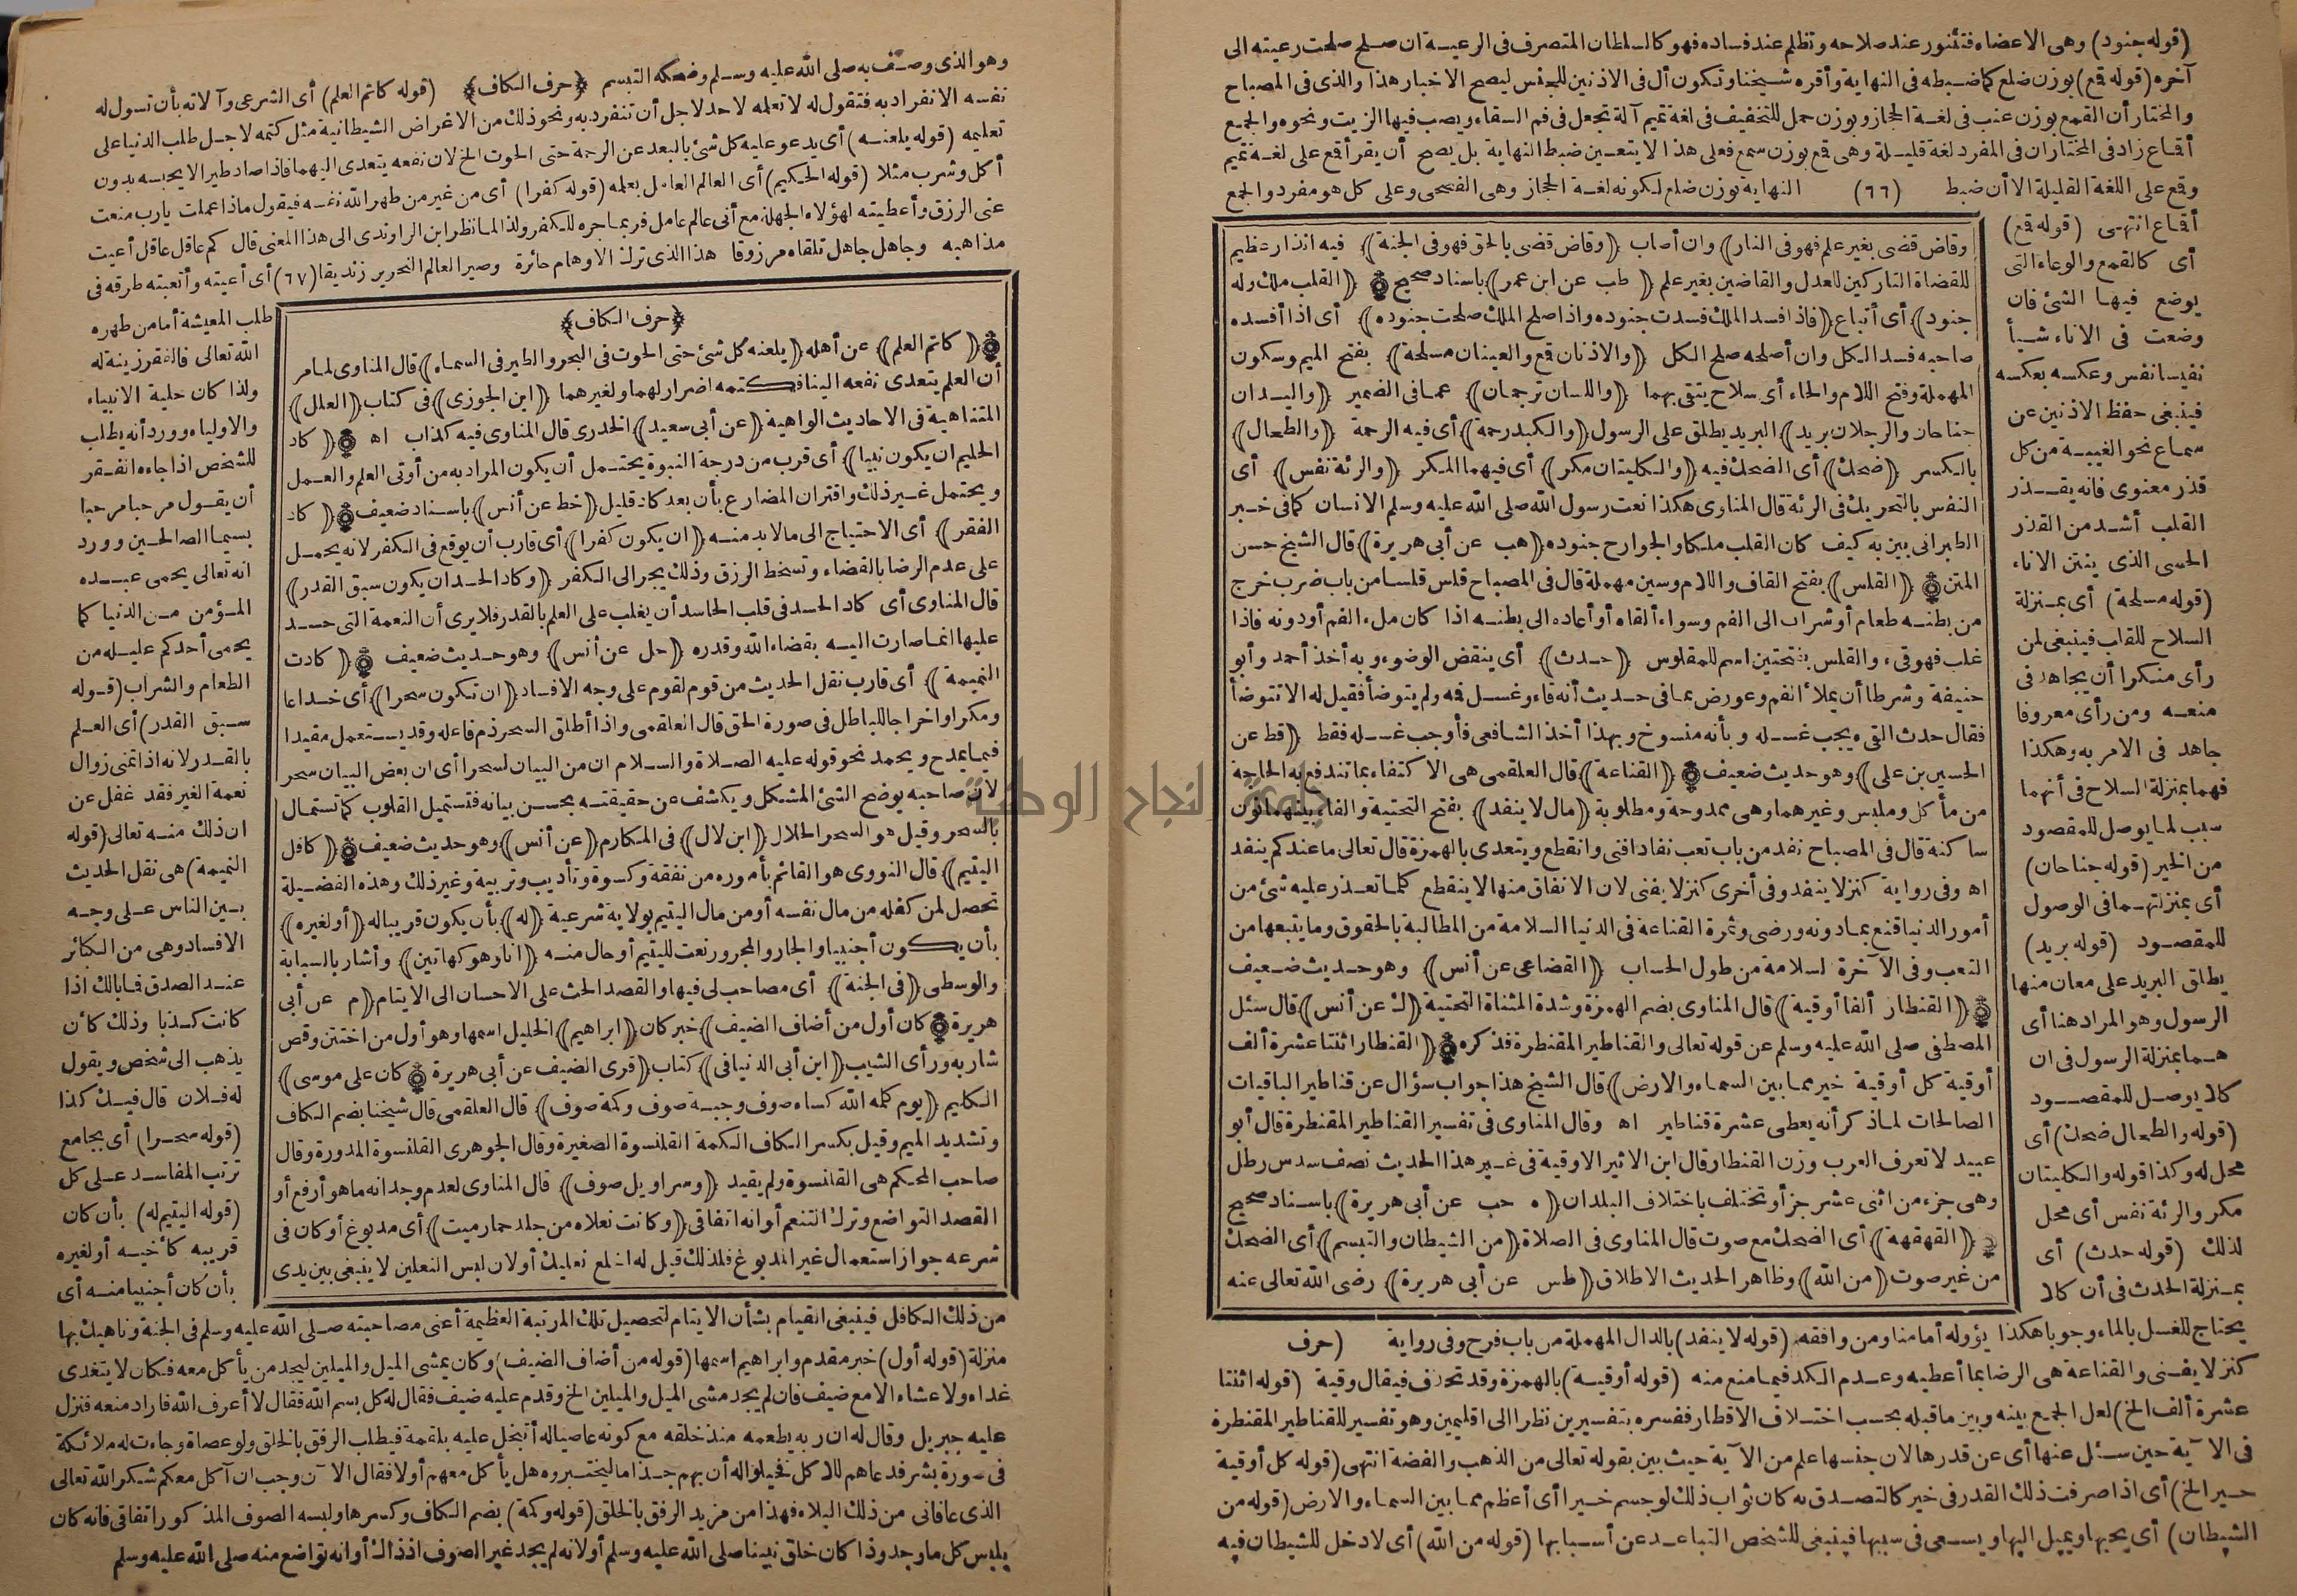 (قوله جنود) وهى الاعضاء فتتنور عند صلاحه وتظلم عند فساده فهو كالسلطان المتصرف فى الرعية ان صلح صلحت رعيته الى
آخره (قوله قع) بوزن ضلع كما ضبطه فى النهاية وأقره شيخنا وتكون أل فى الاذنين للجنس ليصح الاخبار هذا والذى فى المصباح
والمختار أن القمع بوزن عنب فى لغة الحجاز وبوزن حمل للتخفيف فى لغة تميم آلة تجعل فى فم السقاء ويصب فيها الزيت ونحوه والجمع
أقماع زاد فى المختار ان فى المفرد لغة قليلة وهى قمع بوزن سمع فعلى هذا لا يتعين ضبط النهاية بل يصح أن يقرأ قمع على لغة تميم
وقع على اللغة القليلة الا أن ضبط (٦٦) النهاية بوزن ضلع لكونه لغة الحجاز وهى الفصحى وعلى كل هو مفرد والجمع
أقماع انتهى (قوله قع)
أى كالقمع والوعاء التى
يوضع فيها الشئ فان
وضعت فى الاناء شيأ
نفيسا نفس وعكسه بعكسه
فينبغى حفظ الاذنين عن
سماع نحو الغيبة من كل
قذر معنوى فانه يقذر
القلب أشد من القذر
الحسى الذى ينتن الاناء
(قوله مسلحة) أى بمنزلة
السلاح للقلب فينبغى لمن
رأى منكرا أن يجاهد فى
منعه ومن رأى معروفا
جاهد فى الامر به وهكذا
فهما بمنزلة السلاح فى أنهما
سبب لما يوصل للمقصود
من الخير (قوله جناحان)
أى بمنزلتهما فى الوصول
للمقصود (قوله بريد)
يطلق البريد على معان منها
الرسول وهو المراد هنا أى
هما بمنزلة الرسول فى ان
كلا يوصل للمقصود
(قوله والطحال ضحك) أى
محل له وكذا قوله والكليتان
مكر والرئة نفس أى محل
لذلك (قوله حدث) أى
بمنزلة الحدث فى أن كلا
وقاض قضى بغير علم فهو فى النار) وان أصاب (وقاض قضى بالحق فهو فى الجنة) فيه انذار عظيم
للقضاة التاركين للعدل والقاضين بغير علم (طب عن ابن عمر) باسناد صحيح (القلب ملك وله
جنود) أى أتباع (فاذا فسد الملك فسدت جنوده واذا صلح الملك صلحت جنوده) أى اذا أفسده
صاحبه فسد الكل وان أصلحه صلح الكل (والاذنان قع والعينان مسلحة) بفتح الميم وسكون
المهملة وفتح اللام والحاء أى سلاح يتقى بهما (واللسان ترجمان) عما فى الضمير (واليدان
جناحان والرجلان بريد) البريد يطلق على الرسول (والكبد رحمة) أى فيه الرحمة (والطحال)
بالكسر (ضحك) أى الضحك فيه (والكليتان مكر) أى فيهما المكر (والرئة نفس) أى
النفس بالتحريك فى الرئة قال المناوى هكذا نعت رسول الله صلى الله عليه وسلم الانسان كما فى خبر
الطبرانى بين به كيف كان القلب ملكا والجوارح جنوده (هب عن أبى هريرة) قال الشيخ حسن
المتن (القلس) بفتح القاف واللام وسين مهملة قال فى المصباح قلس قلسا من باب ضرب خرج
من بطنه طعام أو شراب الى الفم وسواء ألقاه أو أعاده الى بطنه اذا كان ملء الفم أو دونه فاذا
غلب فهو قىء والقلس بفتحتين اسم للمقلوس (حدث) أى ينقض الوضوء وبه أخذ أحمد وأبو
حنيفة وشرطا أن يملأ الفم وعورض بما فى حديث أنه قاء وغسل فمه ولم يتوضأ فقيل له الا تتوضأ
فقال حدث القىء يجب غسله وبأنه منسوخ وبهذا أخذ الشافعى فأوجب غسله فقط (قط عن
الحسين بن على) وهو حديث ضعيف (القناعة) قال العلقمى هى الاكتفاء بما تندفع به الحاجة
من مأكل وملبس وغيرهما وهى ممدوحة ومطلوبة (مال لا ينفد) بفتح التحتية والفاء بينهما نون
ساكنة قال فى المصباح نفد من باب تعب نفادا فنى وانقطع ويتعدى بالهمزة قال تعالى ما عندكم ينفد
اه وفى رواية كنز لا ينفد وفى أخرى كنز لا يفنى لان الانفاق منها لا ينقطع كلما تعذر عليه شئ من
أمور الدنيا قنع بما دونه ورضى وثمرة القناعة فى الدنيا السلامة من المطالبة بالحقوق وما يتبعها من
التعب وفى الآخرة السلامة من طول الحساب (القضاعى عن أنس) وهو حديث ضعيف
(القنطار ألفا أوقية) قال المناوى بضم الهمزة وشدة المثناة التحتية (ك عن أنس) قال سئل
المصطفى صلى الله عليه وسلم عن قوله تعالى والقناطير المقنطرة فذكره (القنطار اثنتا عشرة ألف
أوقية كل أوقية خير مما بين السماء والارض) قال الشيخ هذا جواب سؤال عن قناطير الباقيات
الصالحات لما ذكر أنه يعطى عشرة قناطير اه وقال المناوى فى تفسير القناطير المقنطرة قال أبو
عبيد لا تعرف العرب وزن القنطار وقال ابن الاثير الاوقية فى غير هذا الحديث نصف سدس رطل
وهى جزء من اثنى عشر جزأ وتختلف باختلاف البلدان (ه حب عن أبى هريرة) باسناد صحيح
(القهقهة) أى الضحك مع صوت قال المناوى فى الصلاة (من الشيطان والتبسم) أى الضحك
من غير صوت (من الله) وظاهر الحديث الاطلاق (طس عن أبى هريرة) رضى الله تعالى عنه
يحتاج للغسل بالماء وجوبا هكذا يؤوله أمامنا ومن وافقه (قوله لا ينفد) بالدال المهملة من باب فرح وفى رواية (حرف
كنز لا يفنى والقناعة هى الرضا بما أعطيه وعدم الكد فيما منع منه (قوله أوقية) بالهمزة وقد تحذف فيقال وقية (قوله اثنتا
عشرة ألف الخ) لعل الجمع بينه وبين ما قبله بحسب اختلاف الاقطار ففسره بتفسيرين نظرا الى اقليمين وهو تفسير للقناطير المقنطرة
فى الآية حين سئل عنها أى عن قدرها لان جنسها علم من الآية حيث بين بقوله تعالى من الذهب والفضة انتهى (قوله كل أوقية
خير الخ) أى اذا صرفت ذلك القدر فى خير كالتصدق به كان ثواب ذلك لو جسم خيرا أى أعظم مما بين السماء والارض (قوله من
الشيطان) أى يحبها ويميل اليها ويسعى فى سببها فينبغى للشخص التباعد عن أسبابها (قوله من الله) أى لا دخل للشيطان فيه
وهو الذى وصف به صلى الله عليه وسلم وضحكه التبسم (حرف الكاف) (قوله كاتم العلم) أى الشرعى وآلاته بأن تسول له
نفسه الانفراد به فتقول له لا تعلمه لاحد لاجل أن تنفرد به ونحو ذلك من الاغراض الشيطانية مثل كتمه لاجل طلب الدنيا على
تعليمه (قوله يلعنه) أى يدعو عليه كل شئ بالبعد عن الرحمة حتى الحوت الخ لان نفعه يتعدى اليهما فاذا صاد طيرا لا يحبسه بدون
أكل وشرب مثلا (قوله الحكيم) أى العالم العامل بعلمه (قوله كفرا) أى من غير من طهر الله نفسه فيقول ماذا عملت يارب منعت
عنى الرزق وأعطيته لهؤلاء الجهلة مع أنى عالم عامل فربما جره للكفر ولذا لما نظر ابن الراوندى الى هذا المعنى قال كم عاقل عاقل أعيت
مذاهبه وجاهل جاهل تلقاه مرزوقا هذا الذى ترك الاوهام حائرة وصير العالم النحرير زنديقا (٦٧) أى أعيته وأتعبته طرقه فى
طلب المعيشة أما من طهره
الله تعالى فالفقر زينة له
ولذا كان حلية الانبياء
والاولياء وورد أنه يطلب
للشخص اذا جاءه الفقر
أن يقول مرحبا مرحبا
بسيما الصالحين وورد
انه تعالى يحمى عبده
المؤمن من الدنيا كما
يحمى أحدكم عليله من
الطعام والشراب (قوله
سبق القدر) أى العلم
بالقدر لانه اذا تمنى زوال
نعمة الغير فقد غفل عن
ان ذلك منه تعالى (قوله
النميمة) هى نقل الحديث
بين الناس على وجه
الافساد وهى من الكبائر
عند الصدق فما بالك اذا
كانت كذبا وذلك كأن
يذهب الى شخص ويقول
له فلان قال فيك كذا
(قوله سحرا) أى بجامع
ترتب المفاسد على كل
(قوله اليتيم له) بأن كان
قريبه كأخيه أو لغيره
بأن كان أجنبيا منه أى
(حرف الكاف)
(كاتم العلم) عن أهله (يلعنه كل شئ حتى الحوت فى البحر والطير فى السماء) قال المناوى لما مر
أن العلم يتعدى نفعه الينا فكتمه اضرار لهما ولغيرهما (ابن الجوزى) فى كتاب (العلل)
المتناهية فى الاحاديث الواهية (عن أبى سعيد) الخدرى قال المناوى فيه كذاب اه (كاد
الحليم ان يكون نبيا) أى قرب من درجة النبوة يحتمل أن يكون المراد به من أوتى العلم والعمل
ويحتمل غير ذلك واقتران المضارع بأن بعد كاد قليل (خط عن أنس) باسناد ضعيف (كاد
الفقر) أى الاحتياج الى ما لا بد منه (ان يكون كفرا) أى قارب أن يوقع فى الكفر لانه يحمل
على عدم الرضا بالقضاء وتسخط الرزق وذلك يجر الى الكفر (وكاد الحسد ان يكون سبق القدر)
قال المناوى أى كاد الحسد فى قلب الحاسد أن يغلب على العلم بالقدر فلا يرى أن النعمة التى حسد
عليها انما صارت اليه بقضاء الله وقدره (حل عن أنس) وهو حديث ضعيف (كادت
النميمة) أى قارب نقل الحديث من قوم لقوم على وجه الافساد (ان تكون سحرا) أى خداعا
ومكرا واخراجا للباطل فى صورة الحق قال العلقمى واذا أطلق السحر ذم فاعله وقد يستعمل مقيدا
فيما يمدح ويحمد نحو قوله عليه الصلاة والسلام ان من البيان لسحرا أى ان بعض البيان سحر
لان صاحبه يوضح الشئ المشكل ويكشف عن حقيقته بحسن بيانه فتستميل القلوب كما تستمال
بالسحر وقيل هو السحر الحلال (ابن لال) فى المكارم (عن أنس) وهو حديث ضعيف (كافل
اليتيم) قال النووى هو القائم بأموره من نفقة وكسوة وتأديب وتربية وغير ذلك وهذه الفضيلة
تحصل لمن كفله من مال نفسه أو من مال اليتيم بولاية شرعية (له) بأن يكون قريبا له (أو لغيره)
بأن يكون أجنبيا والجار والمجرور نعت لليتيم أو حال منه (انا وهو كهاتين) وأشار بالسبابة
والوسطى (فى الجنة) أى مصاحب لى فيها والقصد الحث على الاحسان الى الايتام (م عن أبى
هريرة كان أول من أضاف الضيف) خبر كان (ابراهيم) الخليل اسمها وهو أول من اختتن وقص
شاربه ورأى الشيب (ابن أبى الدنيا فى) كتاب (قرى الضيف عن أبى هريرة كان على موسى)
الكليم (يوم كلمه الله كساء صوف وجبة صوف وكمة صوف) قال العلقمى قال شيخنا بضم الكاف
وتشديد الميم وقيل بكسر الكاف الكمة القلنسوة الصغيرة وقال الجوهرى القلنسوة المدورة وقال
صاحب المحكم هى القلنسوة ولم يقيد (وسراويل صوف) قال المناوى لعدم وجدانه ما هو أرفع أو
القصد التواضع وترك التنعم أو انه اتفاقى (وكانت نعلاه من جلد حمار ميت) أى مدبوغ أو كان فى
شرعه جواز استعمال غير المدبوغ فلذلك قيل له اخلع نعليك أو لان لبس النعلين لا ينبغى بين يدى
من ذلك الكافل فينبغى القيام بشأن الايتام لتحصيل تلك المرتبة العظيمة أعنى مصاحبته صلى الله عليه وسلم فى الجنة وناهيك بها
منزلة (قوله أول) خبر مقدم وابراهيم اسمها (قوله من أضاف الضيف) وكان يمشى الميل والميلين ليجد من يأكل معه فكان لا يتغدى
غداء ولا عشاء الا مع ضيف فان لم يجد مشى الميل والميلين الخ وقدم عليه ضيف فقال له كل بسم الله فقال لا أعرف الله فاراد منعه فنزل
عليه جبريل وقال له ان ربه يطعمه منذ خلقه مع كونه عاصيا له أتبخل عليه بلقمة فيطلب الرفق بالخلق ولو عصاة وجاءت له ملائكة
فى صورة بشر فدعاهم للاكل فخيلوا له أن بهم جذاما ليختبروه هل يأكل معهم أولا فقال الآن وجب ان آكل معكم شكرا لله تعالى
الذى عافانى من ذلك البلاء فهذا من مزيد الرفق بالخلق (قوله وكمة) بضم الكاف وكسرها ولبسه الصوف المذكور اتفاقى فانه كان
يلبس كل ما وجد وذا كان خلق نبينا صلى الله عليه وسلم أو لانه لم يجد غير الصوف اذ ذاك أو انه تواضع منه صلى الله عليه وسلم
جامعة النجاح الوطنية